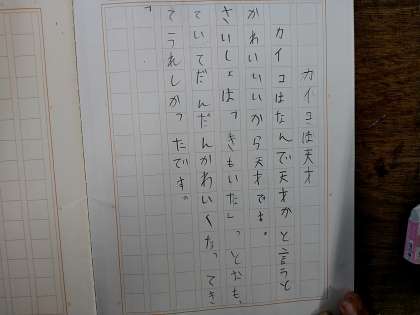 カイコは天才
カイコはなんで天才かと言うと
かわいいから天才です。
さいしょは「きもいな」っとおも
ていてだんだんかわいくなってき
てうれしかったです。